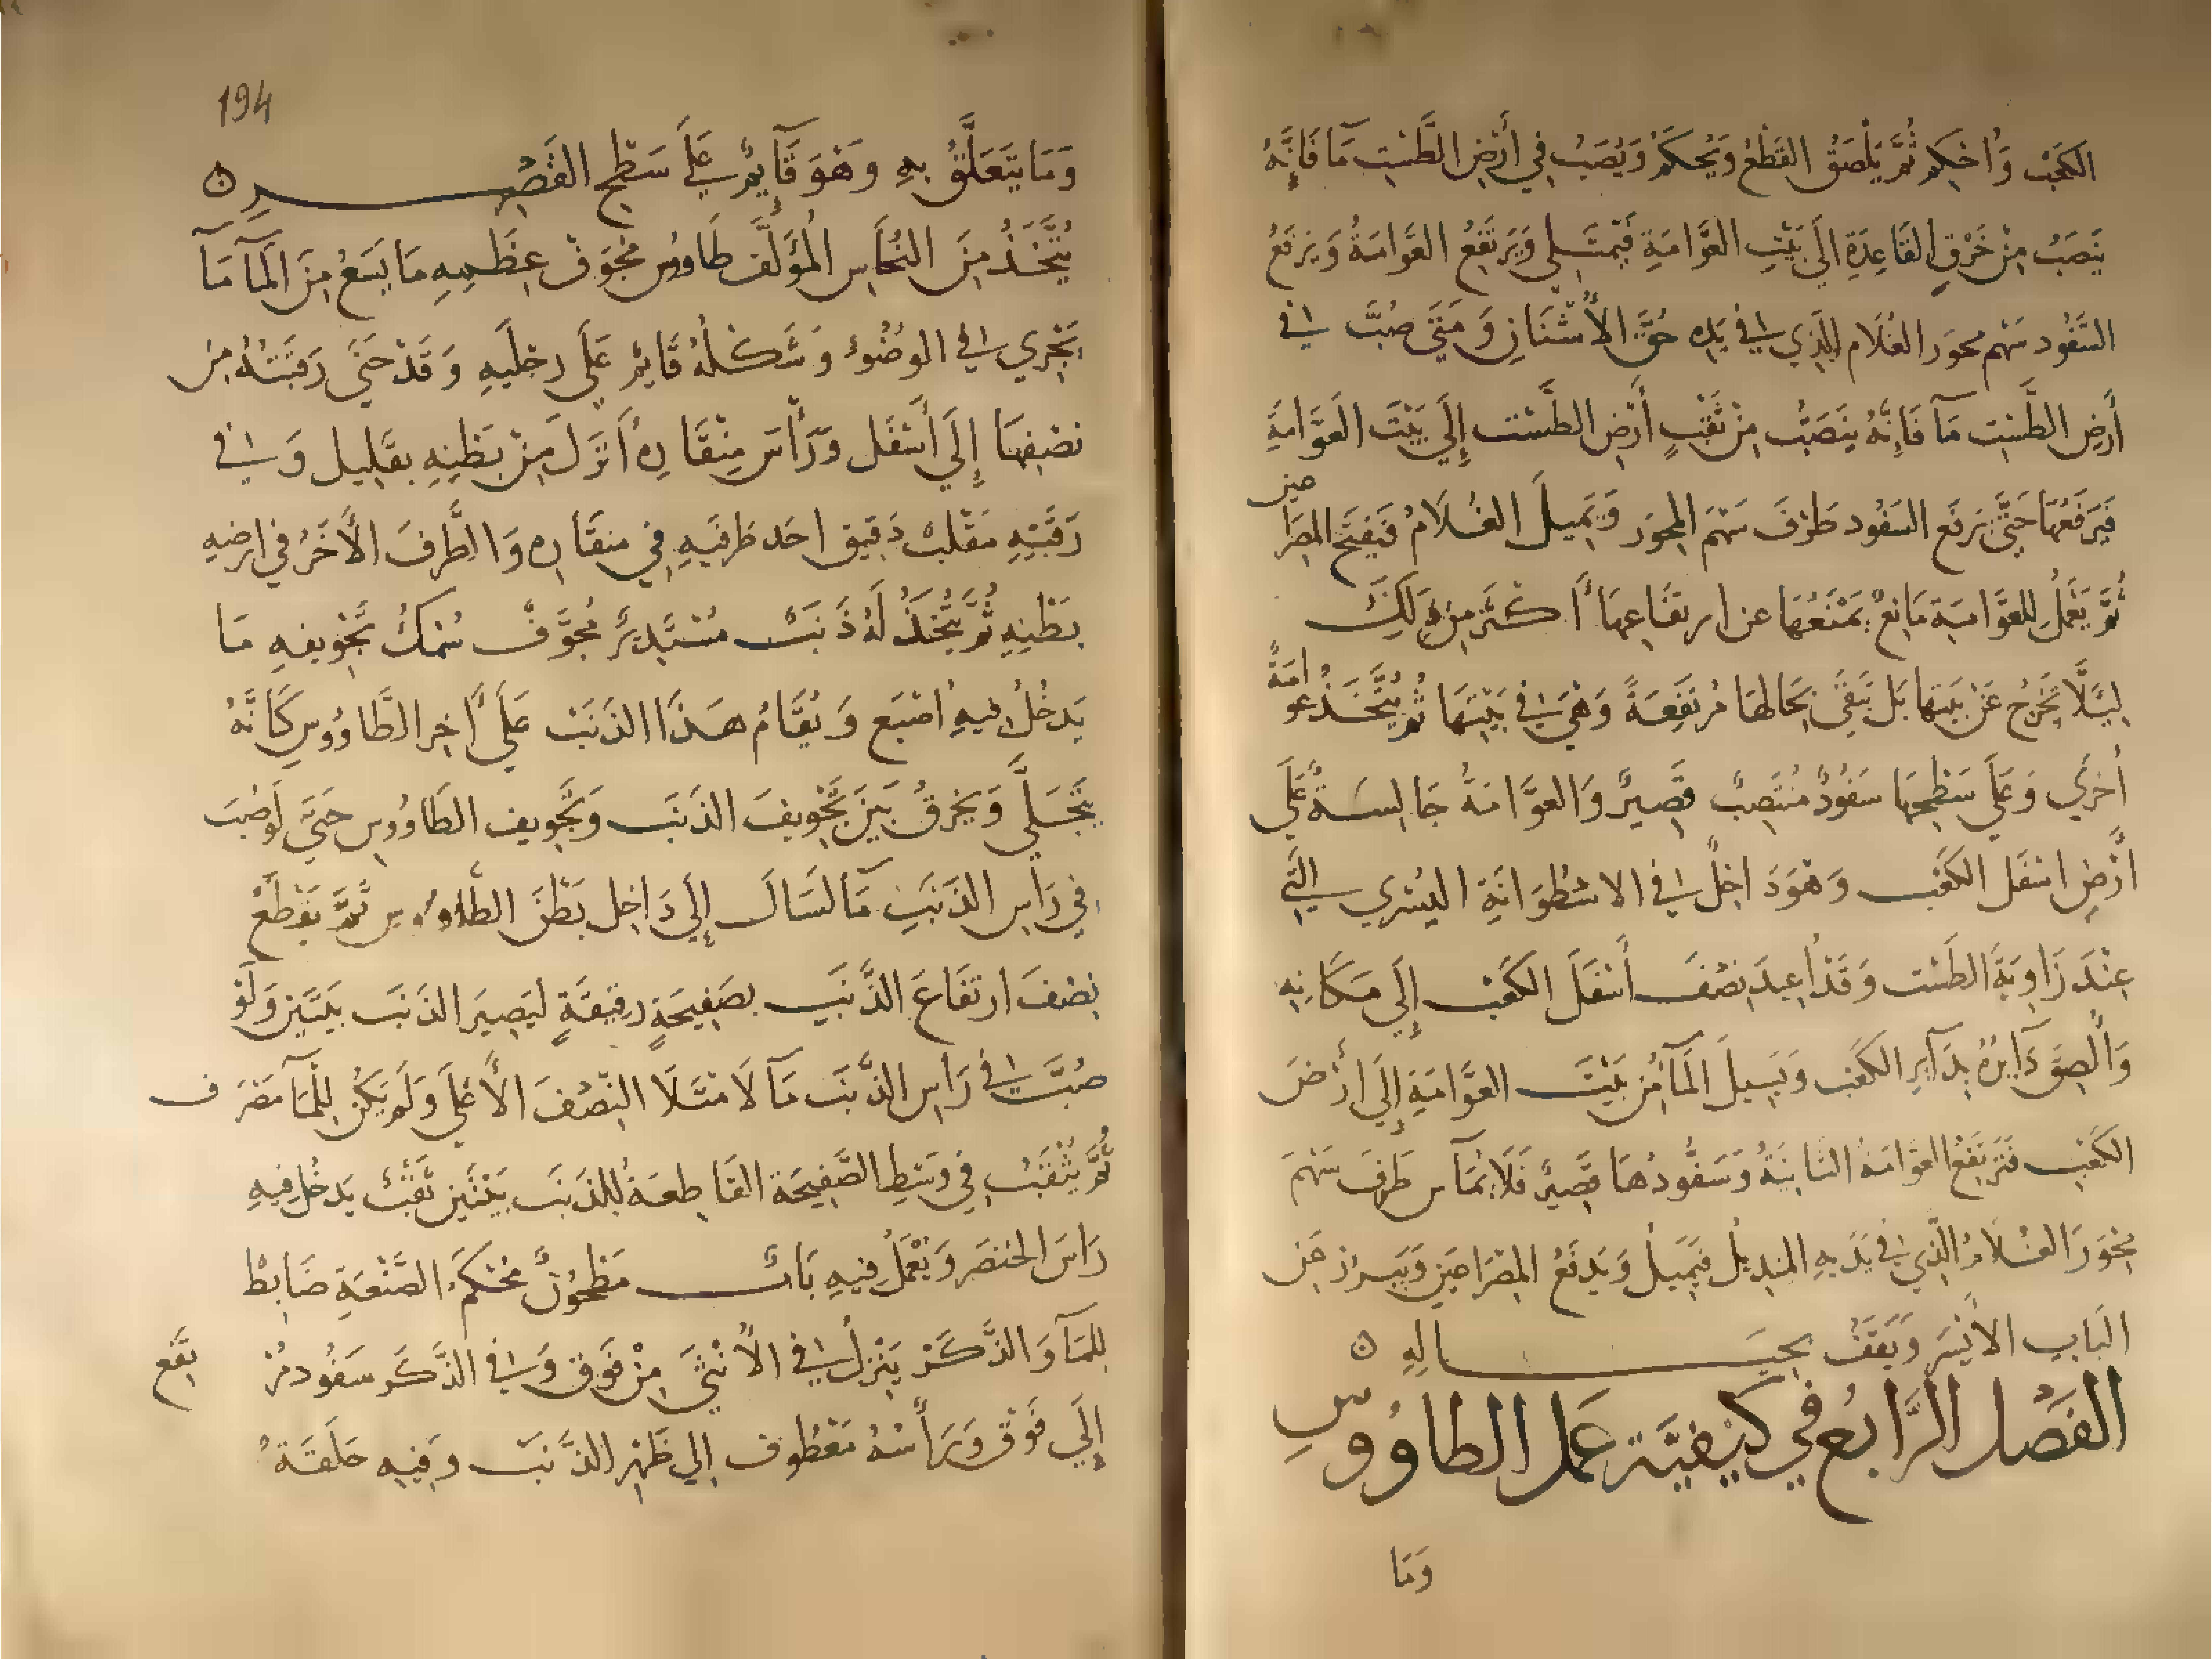 الكعب وَاُحكِم ثُمَّ يُلصَقُ القَطْعُ وَيُحكَم وَيُصَبُ في أَرْضِ الطَّسْتِ مَآ فَإِنَّهُ
يَنصَبُ مِنْ خَرْقِ القَاعِدَةِ اِلَى بَيْتِ العَوَّامَةِ فَيَمتَلي وَيَرتَفِعُ العَوَّامَةُ وَيَرفَعُ
السَفُود سَهم محوَر الغُلَام الَّذِي في يَدِه حُقَّ الأُشْنَانِ وَمَتَى صُبَّ في
أَرضِ الطَّسْتِ مَآ فَاِنَّهُ يَنصَبُّ مِنْ ثَقْبِ أَرْضِ الطَّسْت إِلَي بَيْتَ العَوَّامَةِ
فَيَرفَعُهَا حَتَّى يَرفَع السَفُود طَرْفَ سَهْمَ المحوَر وَيَميلَ الغُلَامُ فَيَفتَح المِصرَاعين
ثُمَّ يَعْمَلُ لِلعَوَّامَةِ مَانِعٌ يَمْنَعُهَا عن ارتفَاعِهَا أَكثَر مِن ذَلِكَ
لِيَلَّا يَخْرُجُ عَنْ بَيتهَا بَل تَبقَى بِحَالهَا مُرتَفِعَةً وَهيَ في بَيْتهَا ثُمَّ يُتَّخَذُ عَوامَةً
أُخرَي وَعَلَي سَطحهَا سَفُودٌ مُنتَصِبٌ قَصِيرٌ وَالعوَّامَةُ جَالسَةٌ عَلَي
اَرْضِ اسْفَل الكَعْب وَهوَ دَاخِلٌ في الاسْطُوَانَةِ اليُسْرَي الَّتي
عِنْدَ زَاوِيَةِ الطَسْت وَقَدْ اُعِيدَ نِصْفَ أَسْفَلَ الكَعْب إِلَي مَكَانِهِ
وَأُلصِقَ دَايِرُهُ بِدَآيرِ الكَعْب وَيَسِيلَ المَآ مِنْ بَيْتَ العَوَّامَةِ إِلَي اَرْضَ
الكَعْبِ فَتَرتَفِعُ العوَّامَةُ الثَانِيَةُ وَسَفُّودُهَا قَصِيرٌ فَلَا يُمَاس طَرفَ سَهْمَ
مِحْوَرَ الغُلَامُ الَّذِي في يَدَيهِ المنديلُ فَيَمِيلُ وَيَدفَعُ المِصْرَاعَينِ وَيَبرُز مِن
البَابِ الأَيْسَرِ وَيَقفُ بحِيَالِهِ ن
الفَصْل الرَّابعُ في كَيْفيَّة عَمَل الطاوُوسِ
وَمَا
194
وَمَا يَتَعَلَّقُ بِهِ وَهْوَ قَآيِمٌ عَلَي سَطْحِ القَصْرِ ن
يُتَّخَذُ مِنَ النُحَاس المُؤَلَّف طَاوُس مُجَوَّف عِظَمِهِ مَا يَسَعُ مِنَ المَآ مَآ
يَجْرِي في الوضُوء وَشَكلُهُ قَايِم عَلَى رِجْلَيهِ وَقَدْ حَنَى رَقَبَتُهُ مِن
نصْفِهَا إِلَي أَسْفَل وَرَأْسَ مِنْقَارِهِ أَنزَلَ مِنْ بَطْنِهِ بقَلِيل وَفي
رَقَبَتِهِ مَقْلَبٌ دَقِيق احَد طَرفَيهِ في منقَارِه وَالطَّرفَ الأَخَر في ارضِهِ
بَطْنِهِ ثُمَّ يُتَّخَذُ لَهُ ذَنَبٌ مُسْتَدِيرٌ مُجَوَّفٌ سُمكُ تَجْويفهِ مَا
يَدخُلُ فيهِ اُصْبَع وَيُقَامُ هَذَا الذَنَبَ عَلَى أَخِر الطَّاوُوسِ كَأَنَّهُ
يَتَجَلَّى وَيخرقُ بَينَ تَجْويفَ الذَنَبَ وَتَجْويف الطَّاوُوس حَتى لَو صُبَ
في رَاسِ الذَنَبَ مَآ لَسَالَ إِلَي دَاخِل بَطْن الطَّاووس ثُمَّ يَقْطَعُ
نِصْفَ ارتفَاعَ الذَّنَبِ بصَفِيحَةٍ رقيقَةٍ لِيَصِيرَ الذَنَبَ بَيتَينِ وَلَوْ
صُبَّ في رَاس الذَّنَبَ مَآ لَامْتَلَا النِّصْفَ الأَعْلَي وَلَم يَكُن لِلمَآ مَصْرَف
ثُمَّ يُثْقَبُ في وَسَطِ الصَّفيحَة القَاطعَةُ لِلذَنَبَ بَيْتَيْن ثَقْبٌ يَدخُلُ فيهِ
رَاسَ الخنصَر وَيُعْمَلُ فيهِ بَابٌ مَطحُونٌ مُحْكَم الصَّنْعَةِ ضَابِطٌ
لِلمَآ وَالذَّكَر يَنْزِلُ في الأُنثَى مِنْ فَوق وَفي الذَّكَر سَفُود مُرْتَفع
إِلَي فَوْق وَرَأْسُهُ مَعْطُوف إلي ظَهْر الذَّنَبَ وَفِيهِ حَلقَةٌ